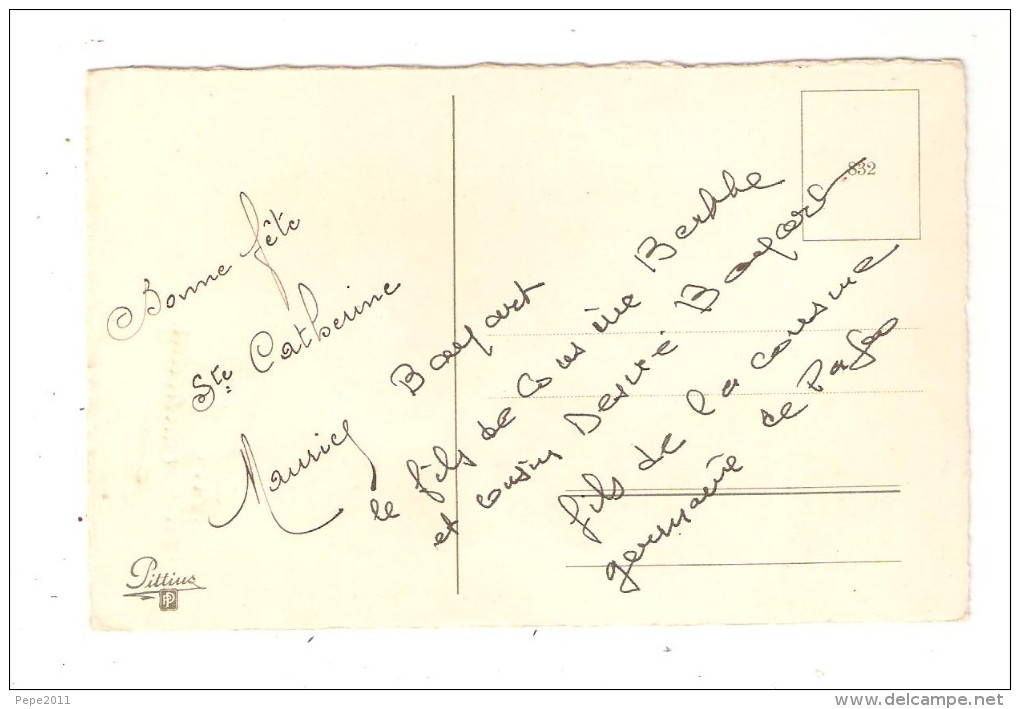 Bonne fête
Ste Catherine
Maurice
Bayart
le fils de Cousine Berthe
et cousin Désiré Bayard
fils de la cousine
germaine de Papa
832
Pittius
Pepe2011
www.delcampe.net